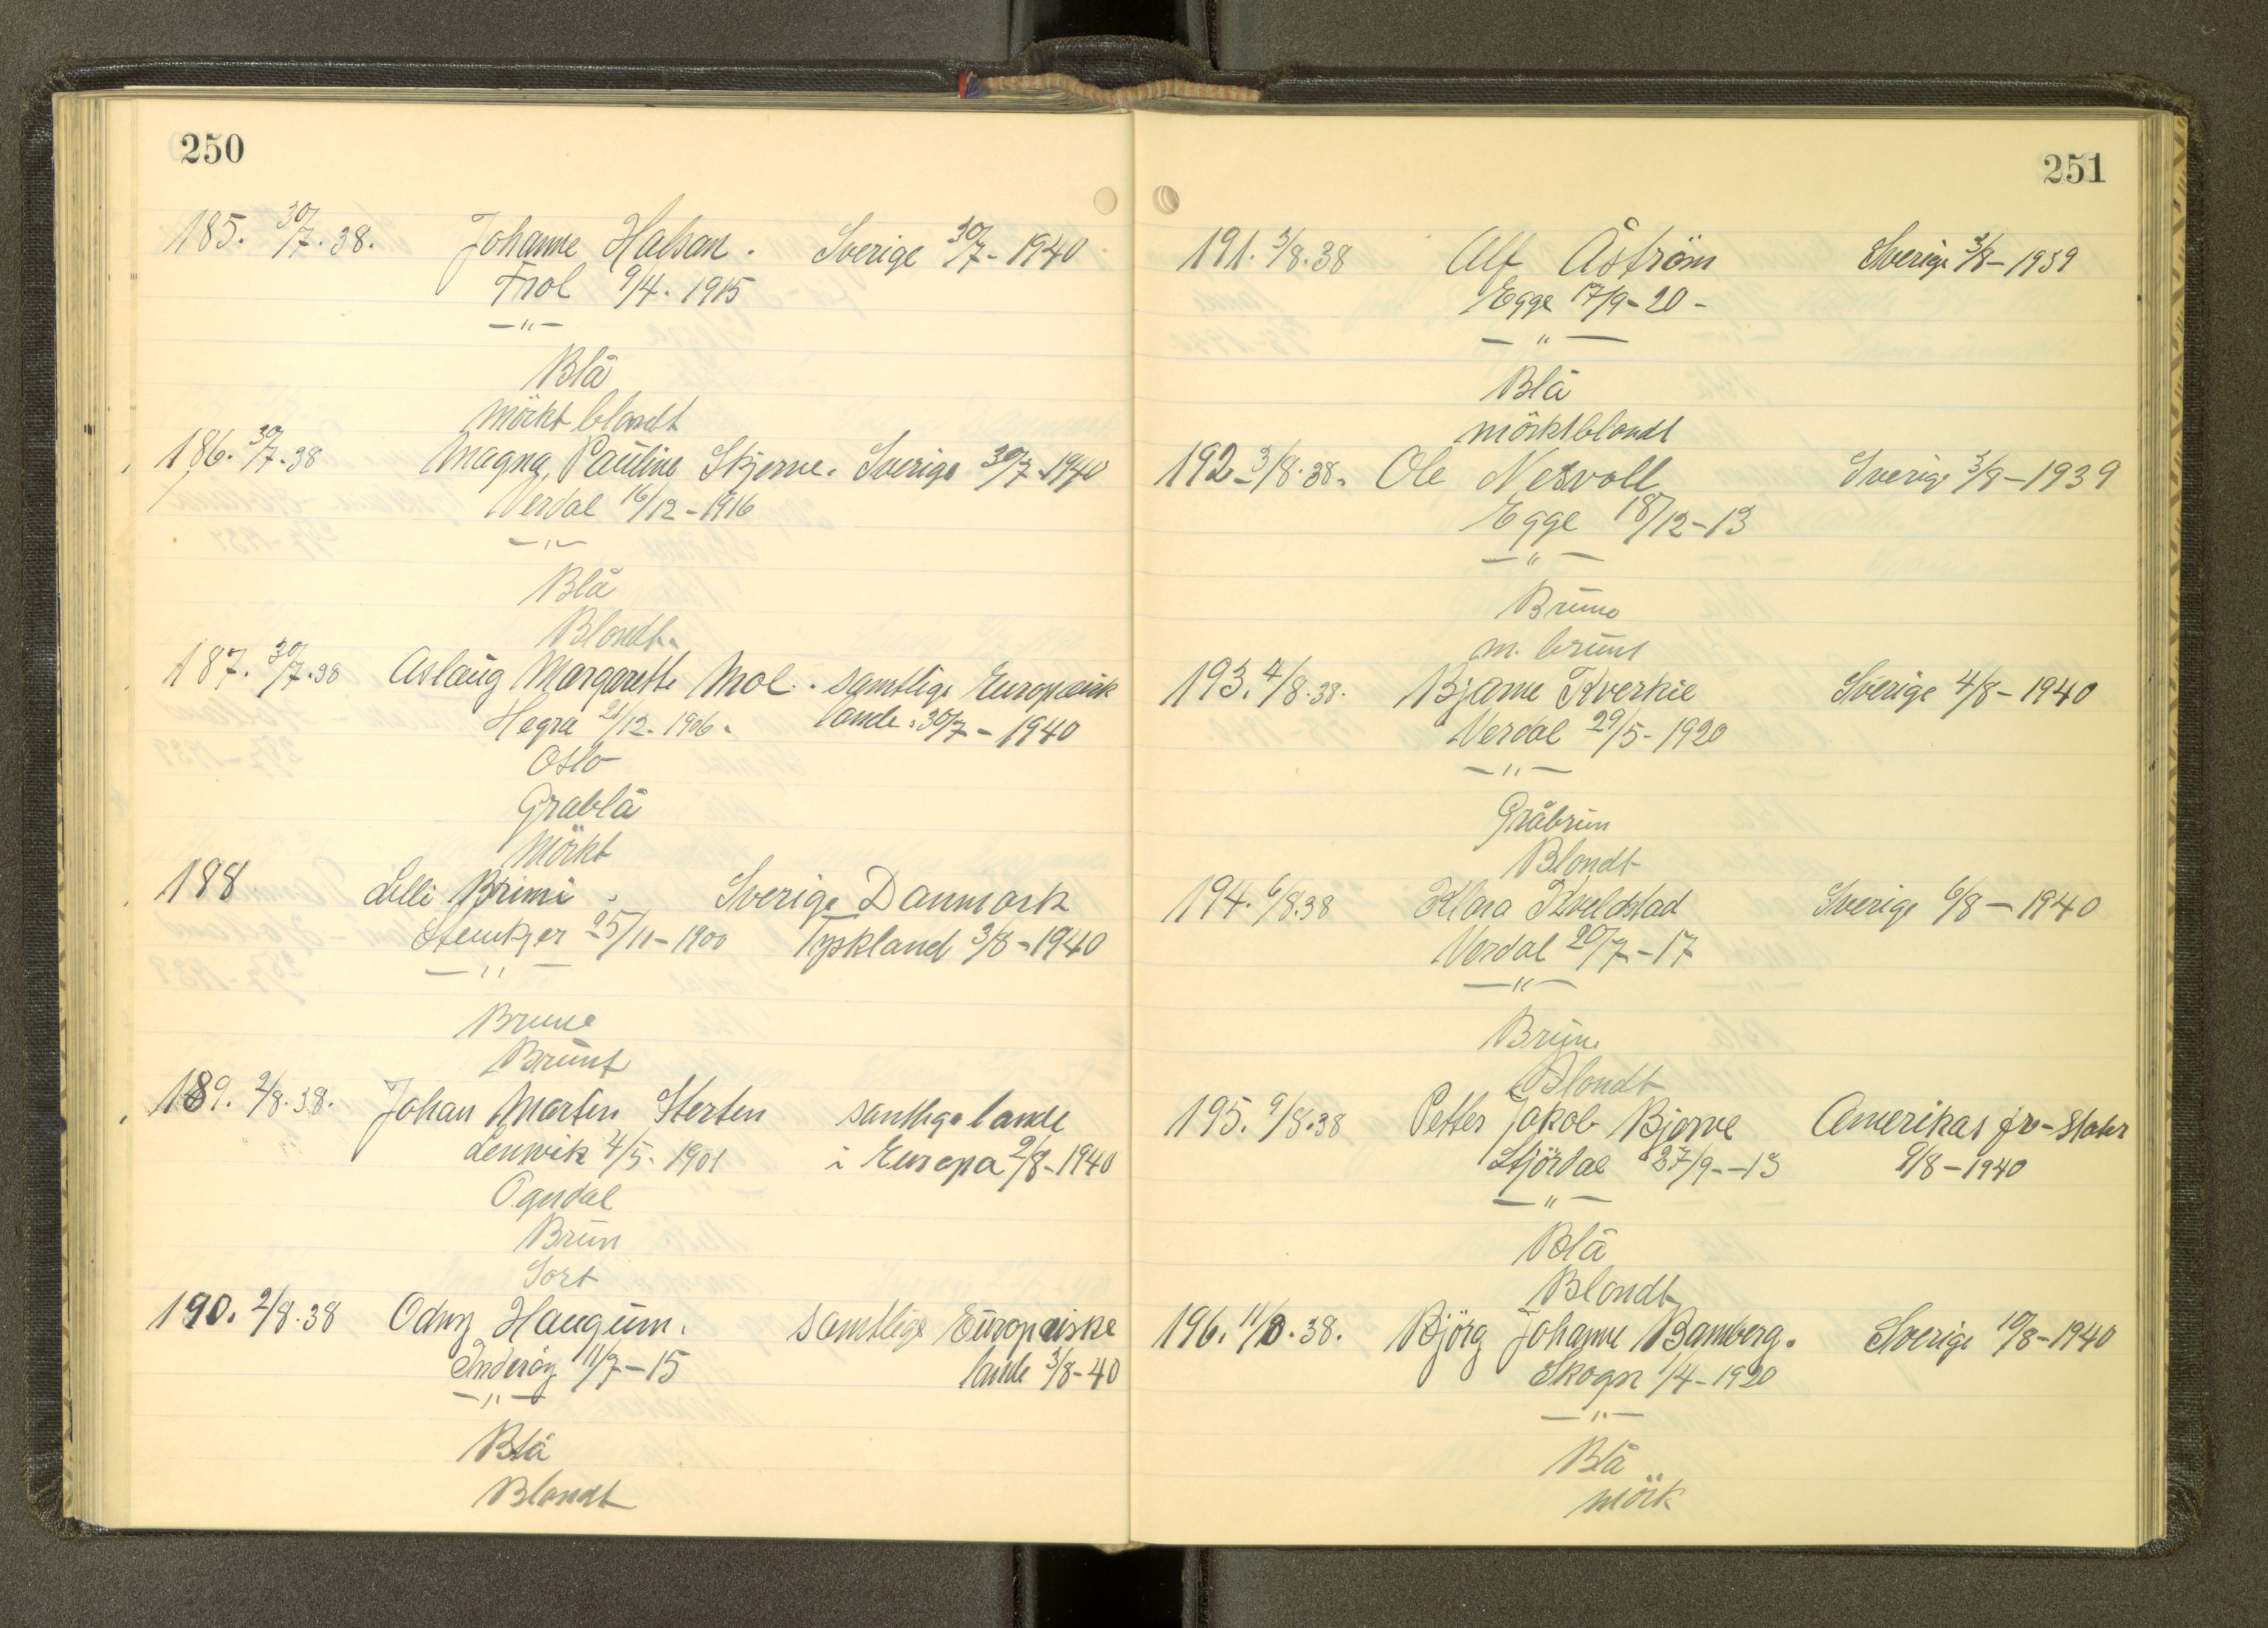 250
185. 30/7.38. Johanne Halsan. Sverige 30/7-1940
Frol 9/4. 1915
—"—
Blå
mörkt blondt
186. 30/7.38 Magna, Pauline Skjerve. Sverige 30/7-1940
Verdal 16/12-1916
—"—
Blå
Blondt.
187. 30/7.38 Aslaug Margarethe Moe. samtlige Europeiske
Hegra 21/12-1906. lande. 30/7-1940
Oslo
Gråblå
Mörkt
188 Lilli Brimi. Sverige Danmark
Steinkjer 25/11-1900 Tyskland 3/8-1940
—"—
Brune
Brunt
189. 2/8.38. Johan Martin Sterten samtlige lande
Lenvik 4/5-1901 i Europa 2/8-1940
Ogndal
Brun
Sort
190. 2/8.38 Odny Haugum. samtlige Europeiske
Inderöy 11/7-15 lande 3/8-40
—"—
Blå
Blondt
251
191. 3/8.38 Alf Åström Sverige 3/8-1939
Egge 17/9-20-
—"—
Blå
mörktblondt
192-3/8.38. Ole Nesvoll Sverige 3/8-1939
Egge 18/12-13
—"—
Brune
m. brunt
193. 4/8.38. Bjarne Kverkil Sverige 4/8-1940
Verdal 29/5-1920
—"—
Gråbrun
Blondt
194. 6/8.38 Klara Kvelstad Sverige 6/8-1940
Verdal 20/7-17
—"—
Brune
Blondt
195. 9/8.38 Petter Jakob Bjerve Amerikas fr-stater
Stjördal 27/9--13 9/8-1940
—"—
Blå
Blondt
196. 11/8.38. Björg Johanne Bamberg. Sverige 10/8-1940
Skogn 1/4-1920
—"—
Blå
mörk